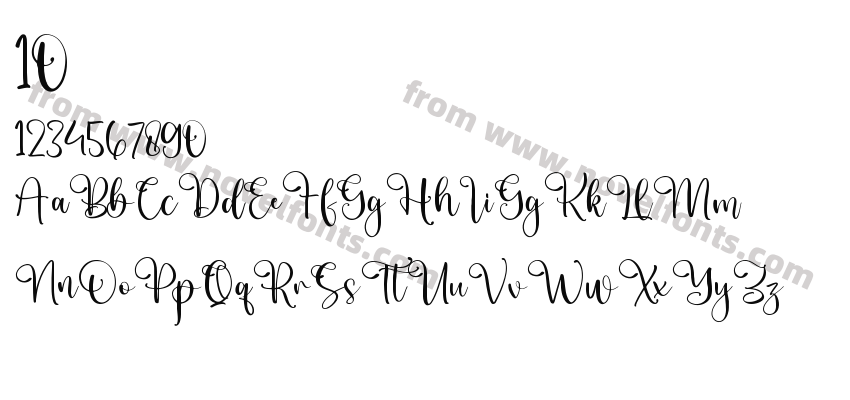 10
1234567890
Aa Bb Cc Dd Ee Ff Gg Hh Ii Gg Kk Ll Mm
Nn Oo Pp Qq Rr Ss Tt Uu Vv Ww Xx Yy Zz
from www.novelfonts.com
from www.novelfonts.com